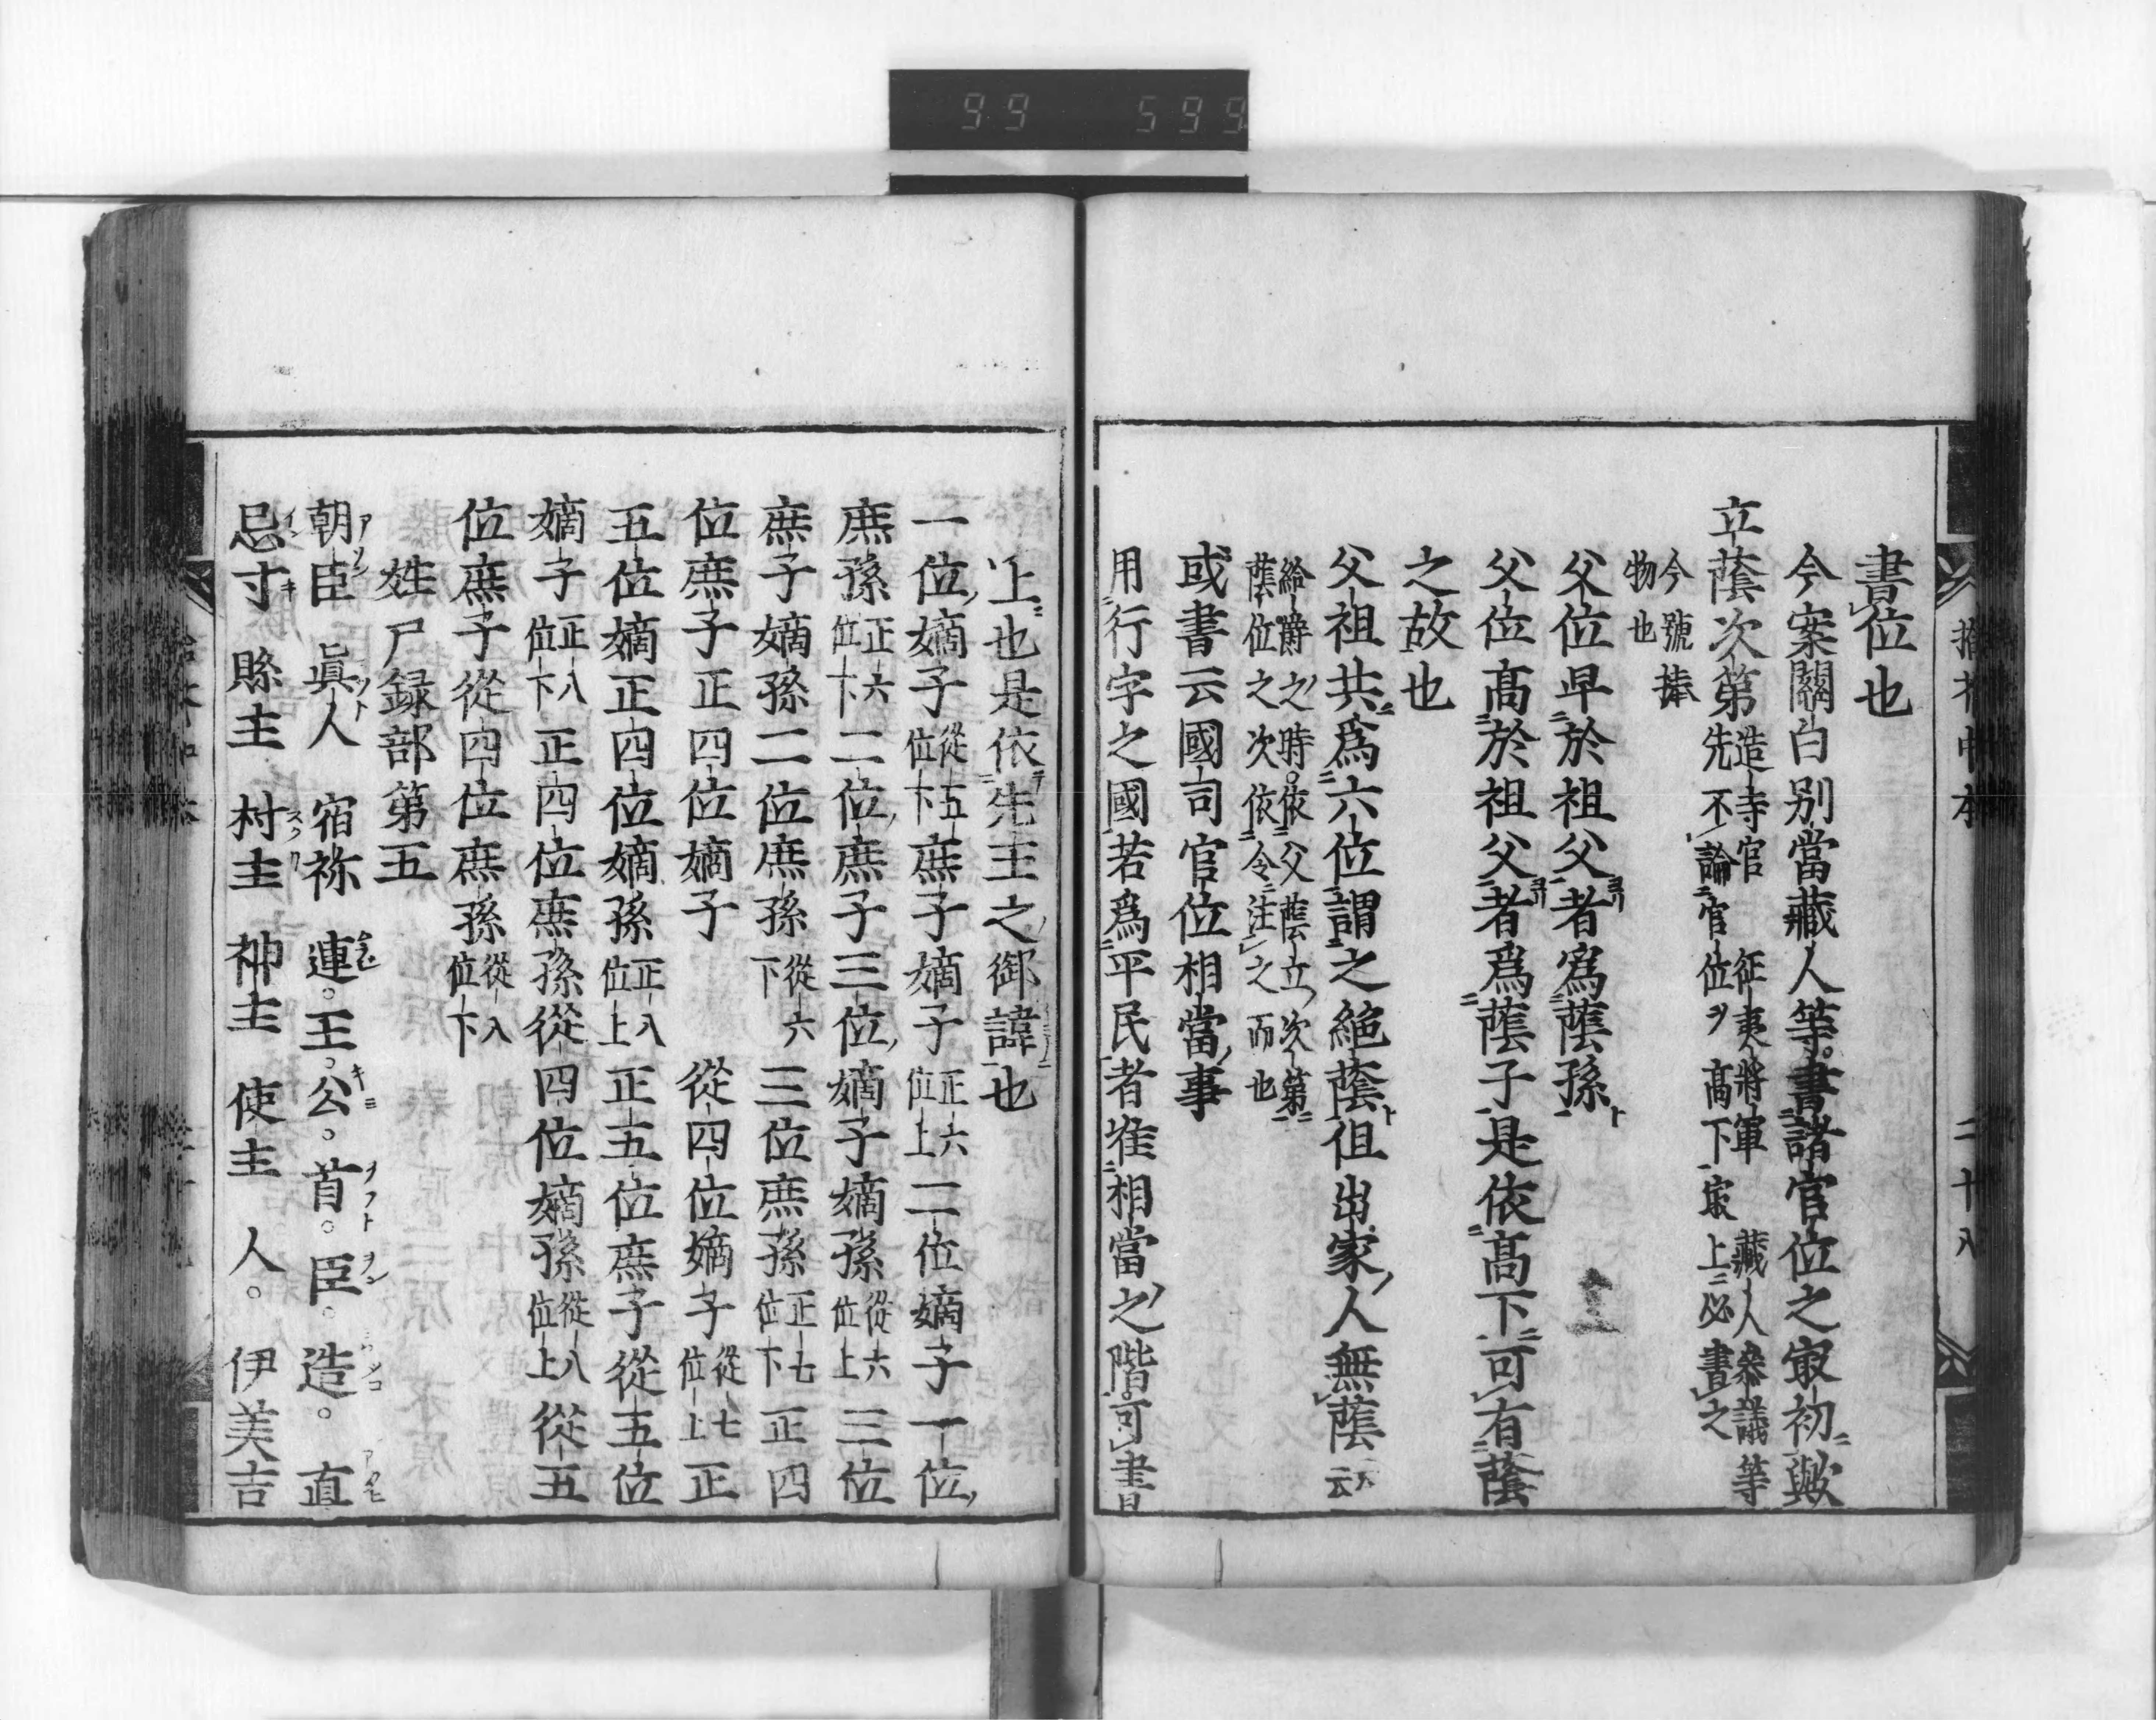 99 599
拾芥中本 二十八
書位也
今案關白別當藏人等書諸官位之最初歟
立蔭次第造寺官 征夷將軍 藏人參議等
先不論官位ヲ高下最上ニ必書之
今號捧
物也
父位卑於祖父者爲蔭孫
父位高於祖父者爲蔭子是依高下可有蔭
之故也
父祖共爲六位謂之絶蔭但出家人無蔭云云
給爵之時依父蔭立次第
蔭位之次依令注之而也
或書云國司官位相當事
用行字之國若爲平民者准相當之階可書
上也是依先王之御諱也
一位嫡子從五位下庶子嫡子正六位上二位嫡子一位
庶孫正六位下二位庶子三位嫡子嫡孫從六位上三位
庶子嫡孫二位庶孫從六下三位庶孫正七位下正四
位庶子正四位嫡子 從四位嫡子從七位上正
五位嫡正四位嫡孫正八位上正五位庶子從五位
嫡子正八位下正四位庶孫從四位嫡孫從八位上從五
位庶子從四位庶孫從八位下
姓尸録部第五
朝臣 眞人 宿祢 連。王。公。首。臣。造。直
忌寸 縣主 村主 神主 使主 人。伊美吉